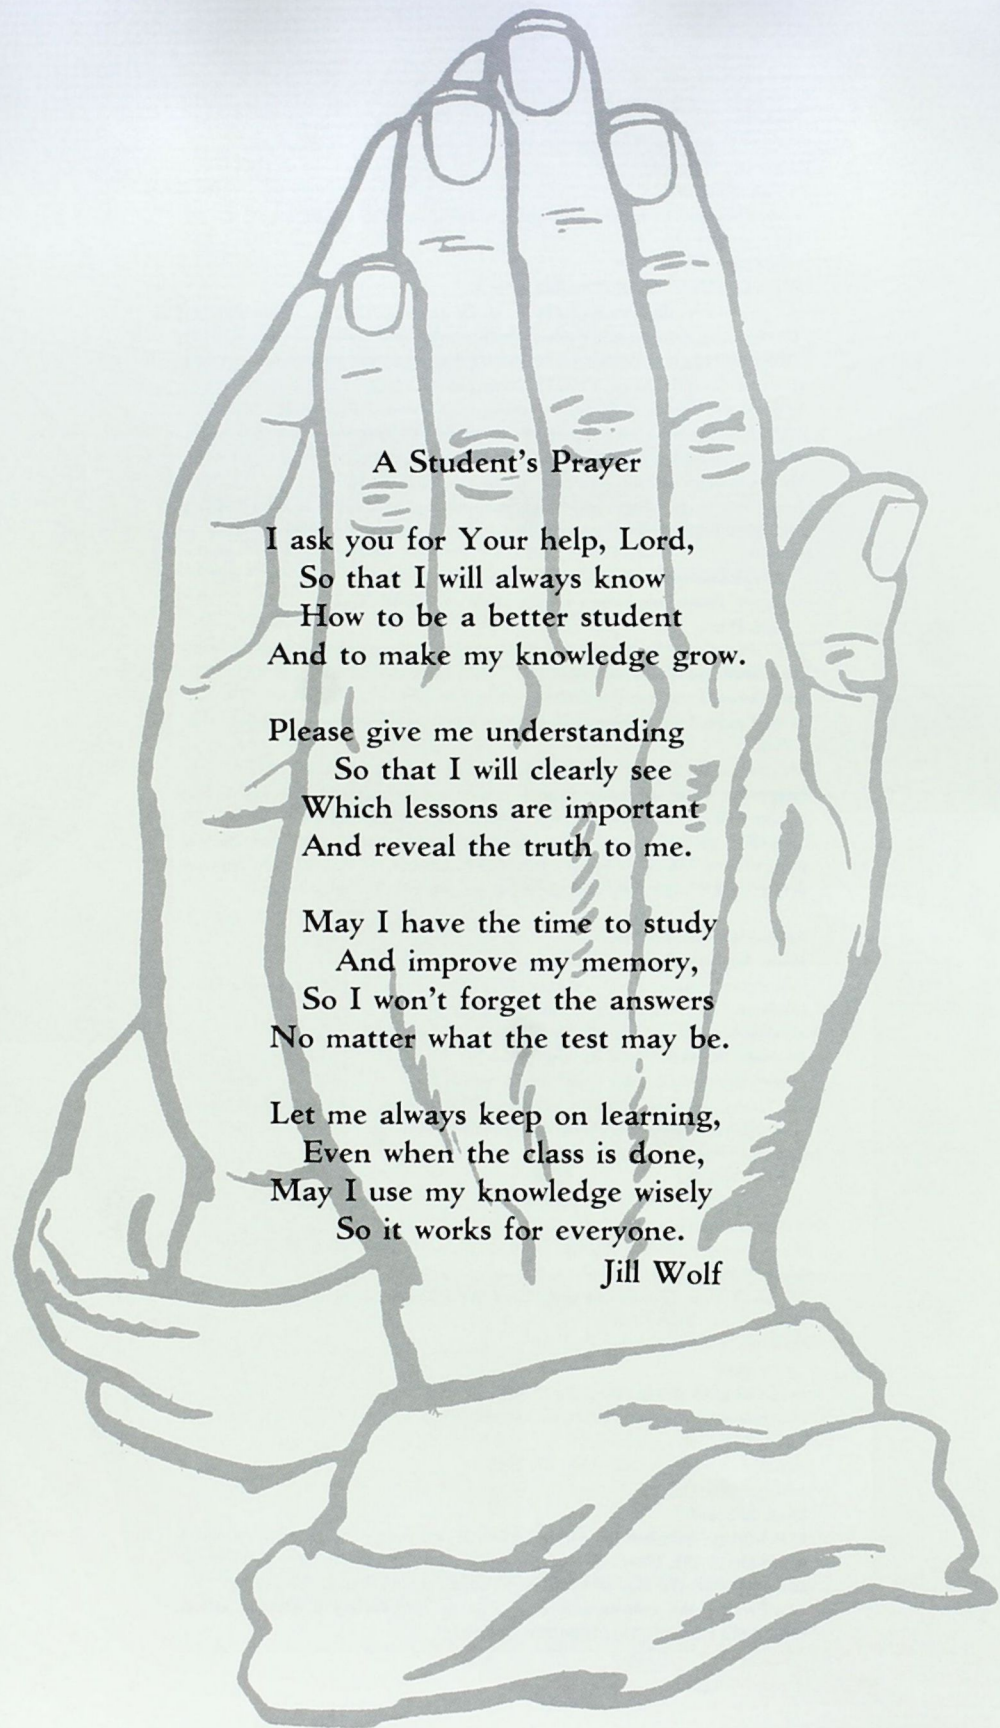 A Student's Prayer
I ask you for Your help, Lord,
So that I will always know
How to be a better student
And to make my knowledge grow.
Please give me understanding
So that I will clearly see
Which lessons are important
And reveal the truth to me.
May I have the time to study
And improve my memory,
So I won't forget the answers
No matter what the test may be.
Let me always keep on learning,
Even when the class is done,
May I use my knowledge wisely
So it works for everyone.
Jill Wolf